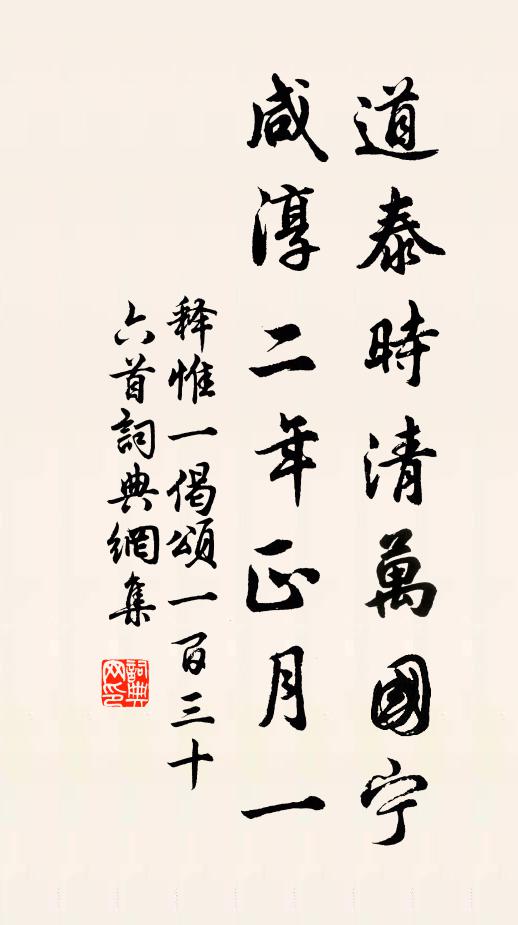 道泰時清萬國宁
咸淳二年正月一
释惟一偈頌一百三十
六首詞典網集
詞典网印